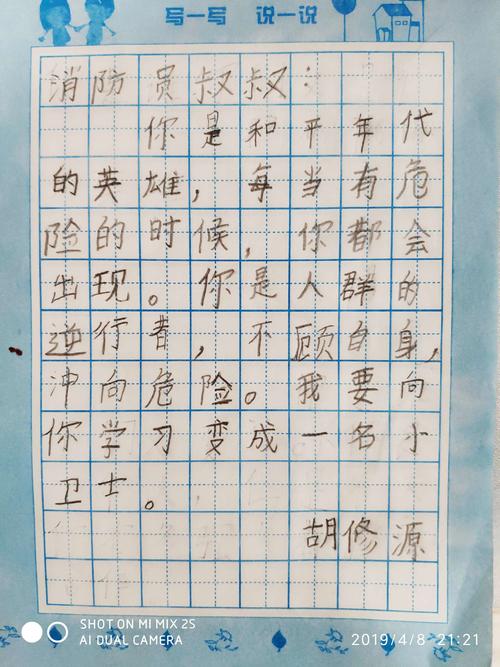 写一写 说一说
消防员叔叔:
你是和平年代
的英雄，每当有危
险的时候，你都会
出现。你是人群的
逆行者，不顾自身，
冲向危险。我要向
你学习变成一名小
卫士。
胡修源
SHOT ON MI MIX 2S
AI DUAL CAMERA
2019/4/8 21:21